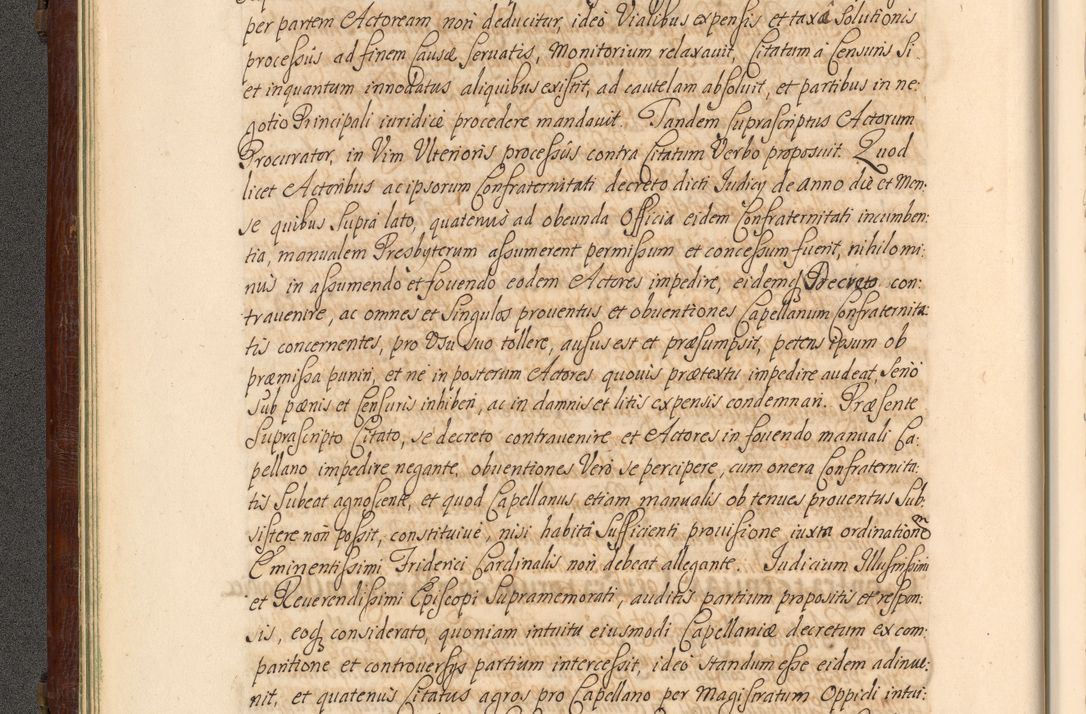 per partem Actoream non deducitur, ideò Vialibus expensis et taxâ Solutionis
processûs ad finem Causæ servatis, Monitorium relaxauit, Citatum à Censuris Si
et inquantum innodatus aliquibus existit, ad cautelam absoluit, et partibus in ne:
gotio Principali iuridicè procedere mandauit. Tandem suprascriptus Actorum
Procurator, in Vim Vlterioris processûs contra Citatum Verbo proposuit. Quod
licet Actoribus ac ipsorum Confraternitati decreto dicti Judicij de anno die et Men:
se quibus supra lato, quatenus ad obeunda Officia eidem Confraternitati incumben:
tia, manualem Presbyterum assumerent permissum et concessum fuerit, nihilomi:
nus in assumendo et fouendo eodem Actores impedire, eidemq Decreto con:
trauenire, ac omnes et singulos prouentus et obuentiones Capellanum Confraternita:
tis concernentes, pro Vsu suo tollere, ausus est et præsumpsit, petens ipsum ob
præmissa puniri, et ne in posterum Actores quouis prætextu impedire audeat, Seriò
sub pænis et Censuris inhiberi, ac in damnis et litis expensis condemnari. Præsente
suprascripto Citato, se decreto contrauenire et Actores in fouendo manuali Ca:
pellano impedire negante, obuentiones Verò se percipere, cum onera Confraternita:
tis subeat agnoscente, et quod Capellanus etiam manualis ob tenues prouentus sub:
sistere non possit, constituiué, nisi habitâ sufficienti prouisione iuxta ordinationẽ
Eminentissimi Friderici Cardinalis non debeat allegante. Judicium Illustrissimi
et Reuerendissimi Episcopi supramemorati, auditis partium propositis et respon:
sis, eoq considerato, quoniam intuitu eiusmodi Capellaniæ decretum ex com:
paritione et controuersijs partium intercessit, ideò standum esse eidem adinue:
nit, et quatenus Citatus agros pro Capellano per Magistratum Oppidi intui: